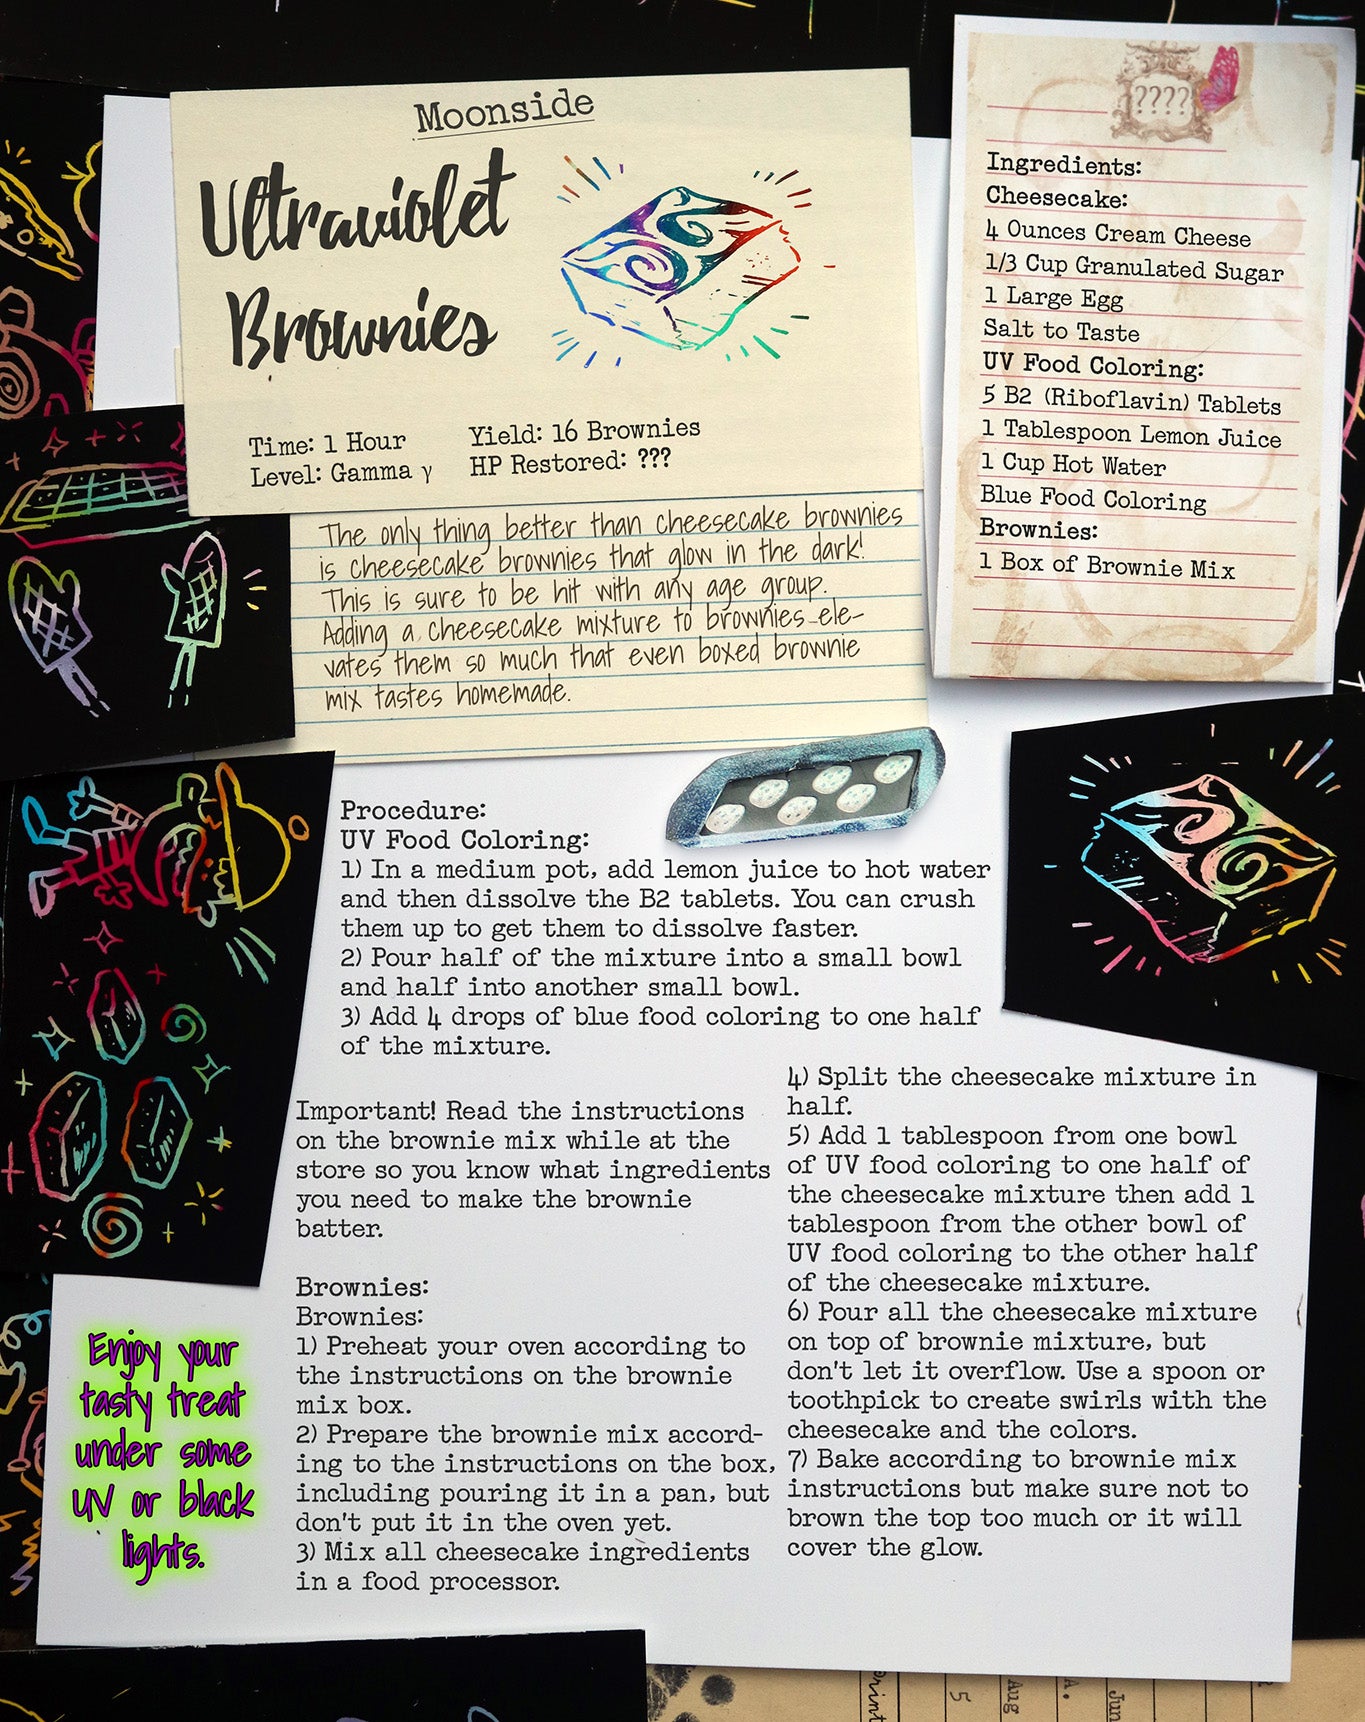 Moonside
Ultraviolet
Brownies
Time: 1 Hour
Level: Gamma γ
Yield: 16 Brownies
HP Restored: ???
The only thing better than cheesecake brownies
is cheesecake brownies that glow in the dark!
This is sure to be hit with any age group.
Adding a cheesecake mixture to brownies ele-
vates them so much that even boxed brownie
mix tastes homemade.
????
Ingredients:
Cheesecake:
4 Ounces Cream Cheese
1/3 Cup Granulated Sugar
1 Large Egg
Salt to Taste
UV Food Coloring:
5 B2 (Riboflavin) Tablets
1 Tablespoon Lemon Juice
1 Cup Hot Water
Blue Food Coloring
Brownies:
1 Box of Brownie Mix
Procedure:
UV Food Coloring:
1) In a medium pot, add lemon juice to hot water
and then dissolve the B2 tablets. You can crush
them up to get them to dissolve faster.
2) Pour half of the mixture into a small bowl
and half into another small bowl.
3) Add 4 drops of blue food coloring to one half
of the mixture.
Important! Read the instructions
on the brownie mix while at the
store so you know what ingredients
you need to make the brownie
batter.
Brownies:
Brownies:
1) Preheat your oven according to
the instructions on the brownie
mix box.
2) Prepare the brownie mix accord-
ing to the instructions on the box,
including pouring it in a pan, but
don't put it in the oven yet.
3) Mix all cheesecake ingredients
in a food processor.
4) Split the cheesecake mixture in
half.
5) Add 1 tablespoon from one bowl
of UV food coloring to one half of
the cheesecake mixture then add 1
tablespoon from the other bowl of
UV food coloring to the other half
of the cheesecake mixture.
6) Pour all the cheesecake mixture
on top of brownie mixture, but
don't let it overflow. Use a spoon or
toothpick to create swirls with the
cheesecake and the colors.
7) Bake according to brownie mix
instructions but make sure not to
brown the top too much or it will
cover the glow.
Enjoy your
tasty treat
under some
UV or black
lights.
5
Aug
A.
Jun